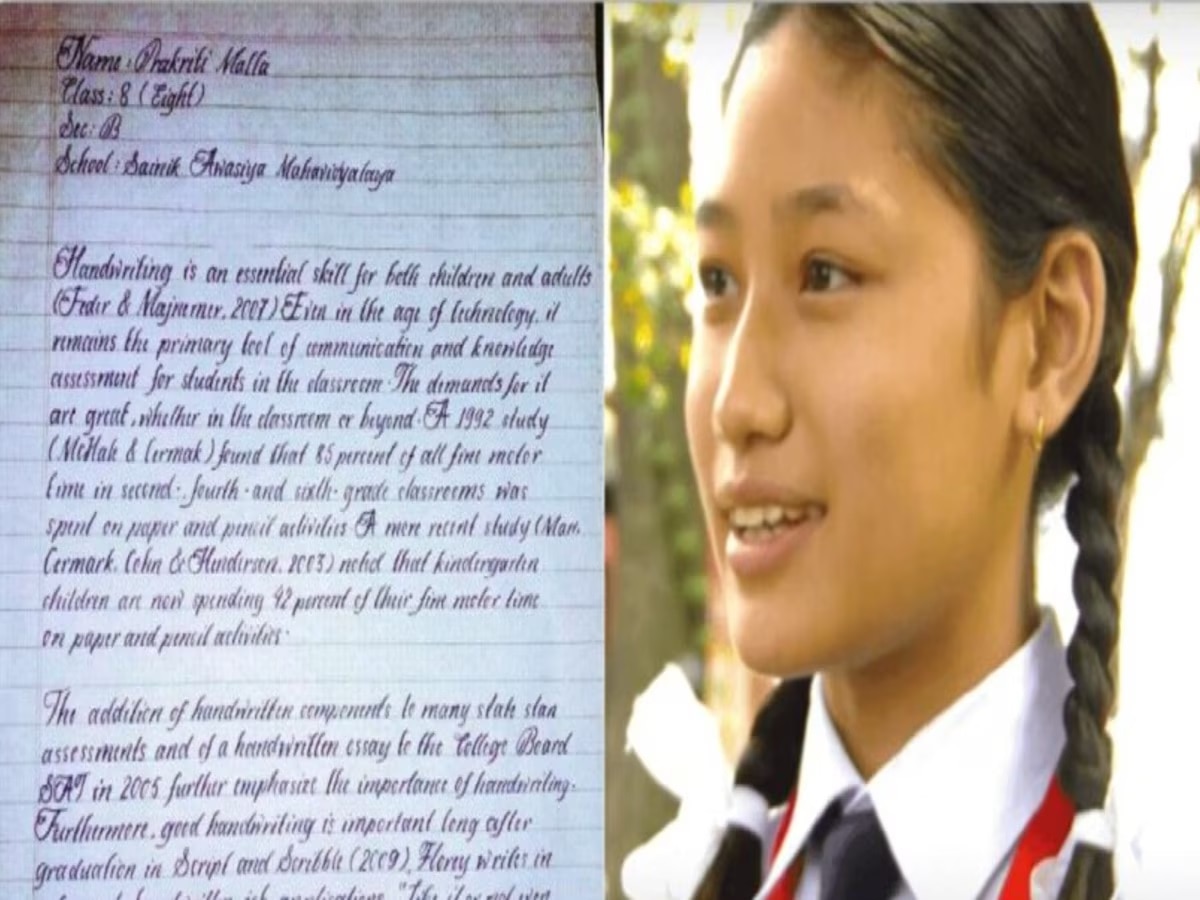 Name: Prakriti Malla
Class: 8 (Eight)
Sec: B
School: Sainik Awasiya Mahavidyalaya
Handwriting is an essential skill for both children and adults
(Feder & Majnemer, 2007) Even in the age of technology, it
remains the primary tool of communication and knowledge
assessment for students in the classroom. The demands for it
are great, whether in the classroom or beyond. A 1992 study
(McHale & Cermak) found that 85 percent of all fine motor
time in second-, fourth-and sixth-grade classrooms was
spent on paper and pencil activities A more recent study (Marr,
Cermark, Cohn & Henderson, 2003) noted that kindergarten
children are now spending 42 percent of their fine motor time
on paper and pencil activities.
The addition of handwritten components to many state stan
assessments and of a handwritten essay to the College Board
SAT in 2005 further emphasize the importance of handwriting.
Furthermore, good handwriting is important long after
graduation in Script and Scribble (2009), Florey writes in
handwritten job applications, "Like it or not even